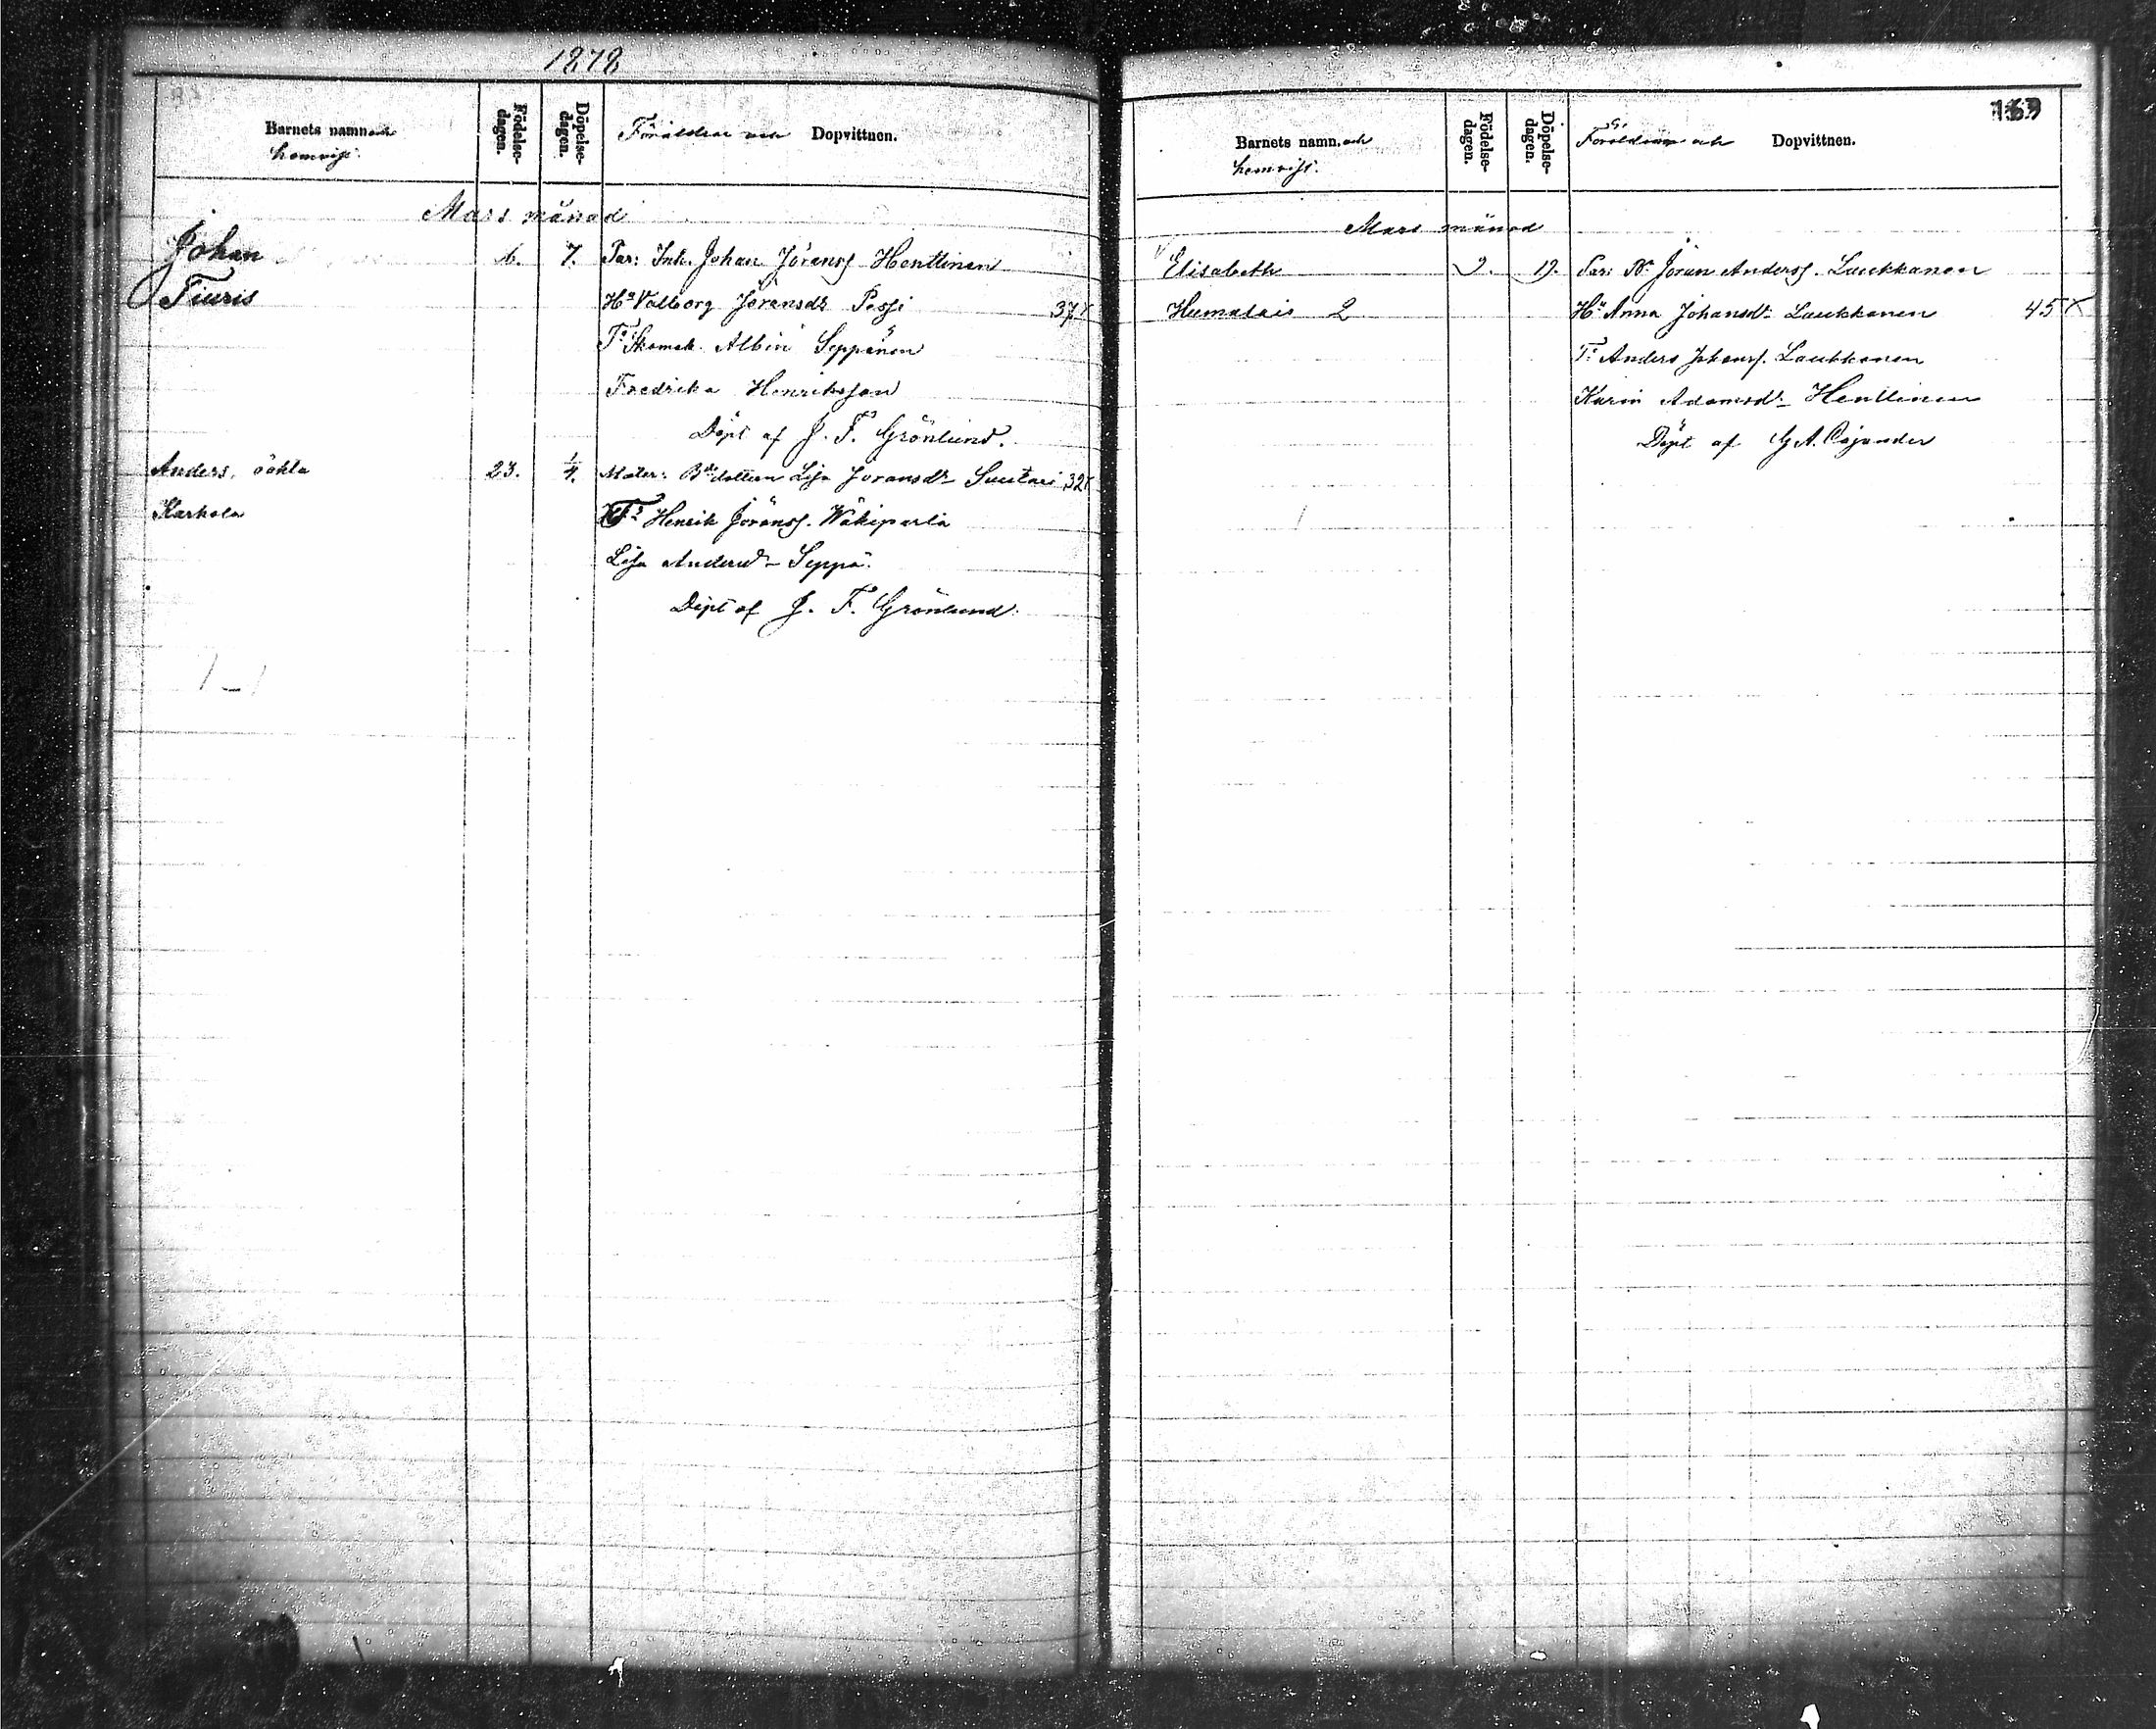 1878
Barnets namn och Födelse-dagen. Döpelse-dagen. Föräldrar och Dopvittnen.
hemvist.
Mars månad
Johan 6. 7. Par: Inh. Johan Jöranss. Henttinen
Tiuris Hu Valborg Jöransdr Possi 37 x
T: Skomak. Albin Seppänen
Fredrika Henriksson
Döpt af J. F. Grönlund.
Anders, oäkta 23. 1/4. Mater: Bdedottern Lisa Jöransdr Suutari 32 x
Karhola T: Henrik Jöranss. Wäkiparta
Lisa Andersdr Seppä.
Döpt af J. F. Grönlund.
169
Barnets namn. och Födelse-dagen. Döpelse-dagen. Föräldrar och Dopvittnen.
hemvist.
Mars månad
Elisabeth 9. 19. Par: Jöran Anderss. Laukkanen
Humalais 2 Hu Anna Johansdr Laukkanen 45 x
T: Anders Johanss. Laukkanen
Karin Adamsdr Henttinen
Döpt af G A. Cajander